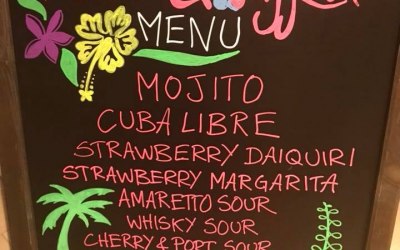 MENU
MOJITO
CUBA LIBRE
STRAWBERRY DAIQUIRI
STRAWBERRY MARGARITA
AMARETTO SOUR
WHISKY SOUR
CHERRY & PORT SOUR